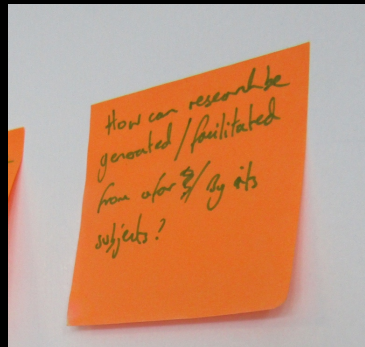 How can research be
generated / facilitated
from afar &/ By its
subjects?